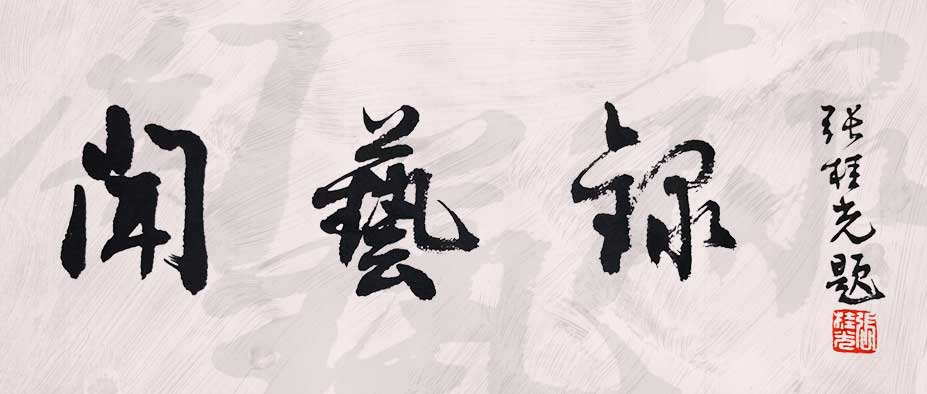 聞藝録
张桂光題
張桂光